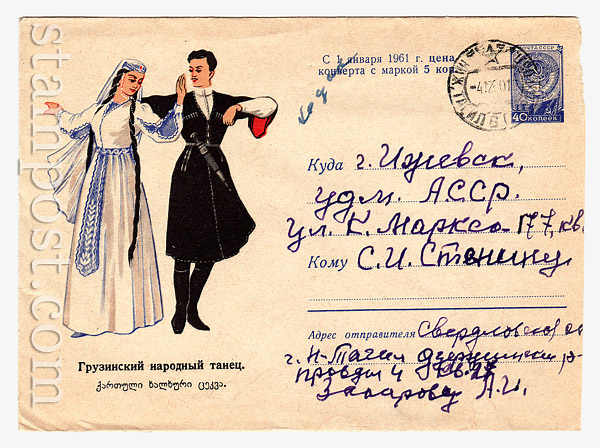 С 1 января 1961 г. цена
конверта с маркой 5 коп.
ПОЧТА СССР
40 КОПЕЕК
Куда г. Ижевск,
удм. АССР.
ул. К. Маркса 177, кв.
Кому С. И. Стенину
Адрес отправителя Свердловск
г. Н-Тагил Дзержинский р-
Правды 4 кв.
Захарову А. И.
Грузинский народный танец.
ქართული ხალხური ცეკვა.
stampost.com
stampost.com